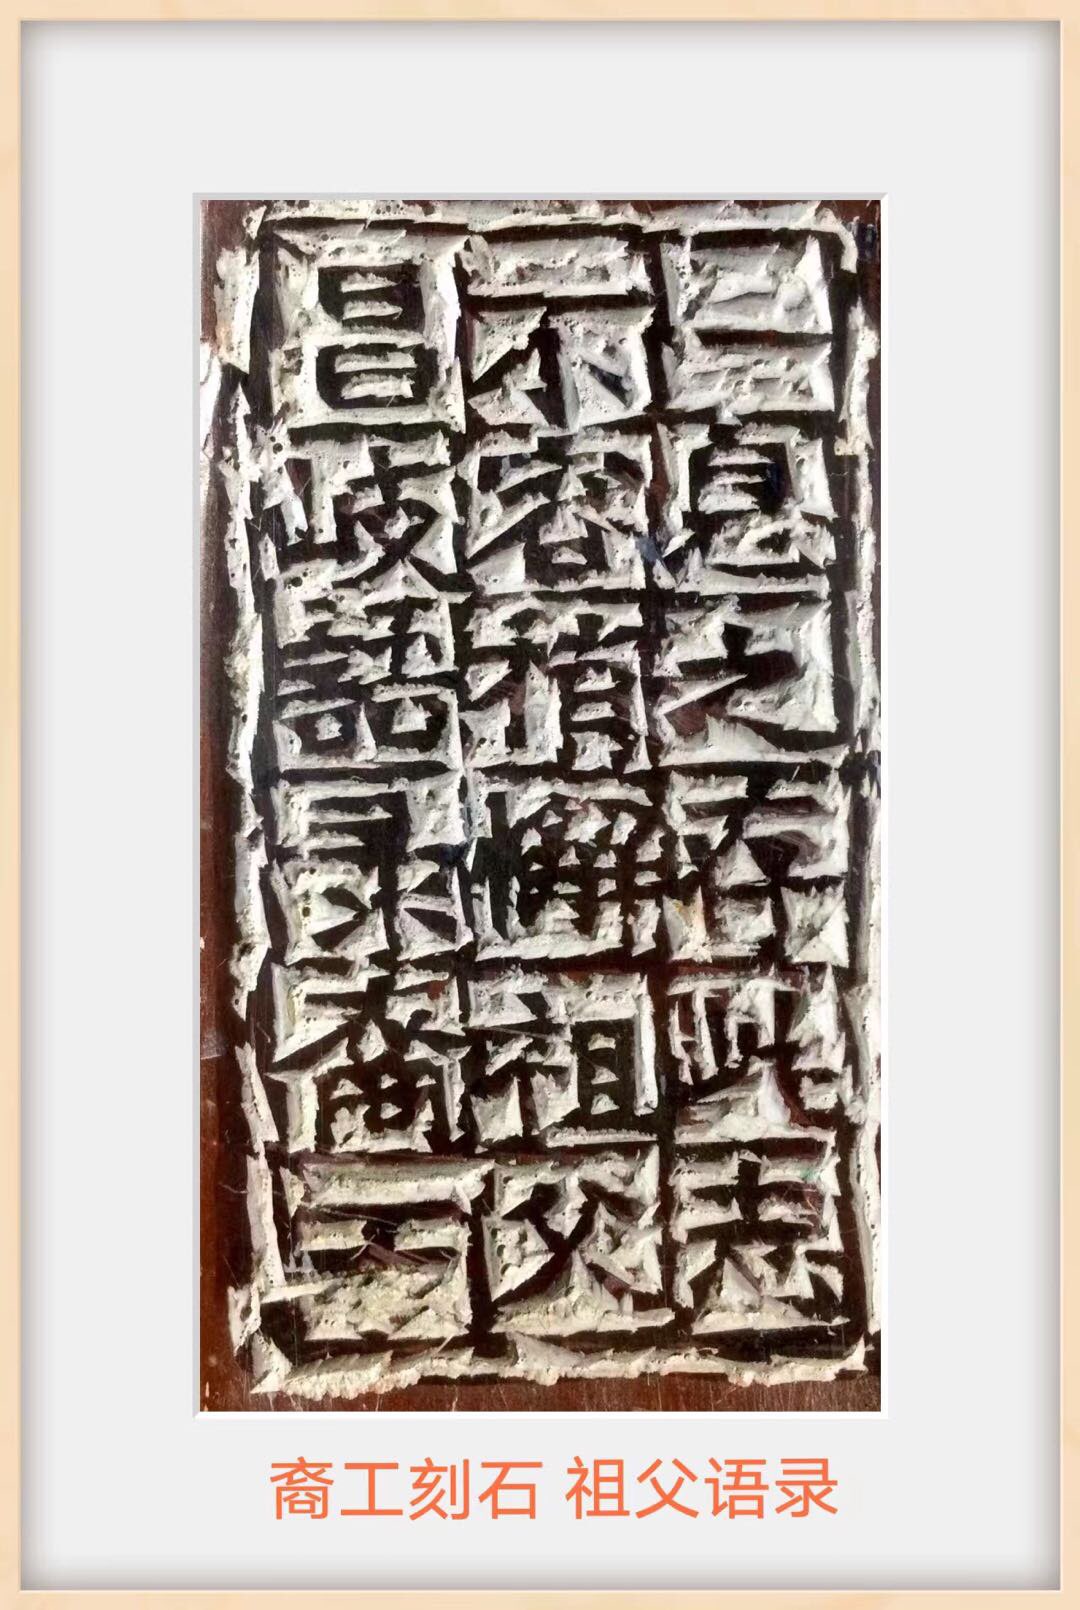 一息之存此志
不容稍懈祖父
昌岐語录裔工
裔工刻石 祖父语录